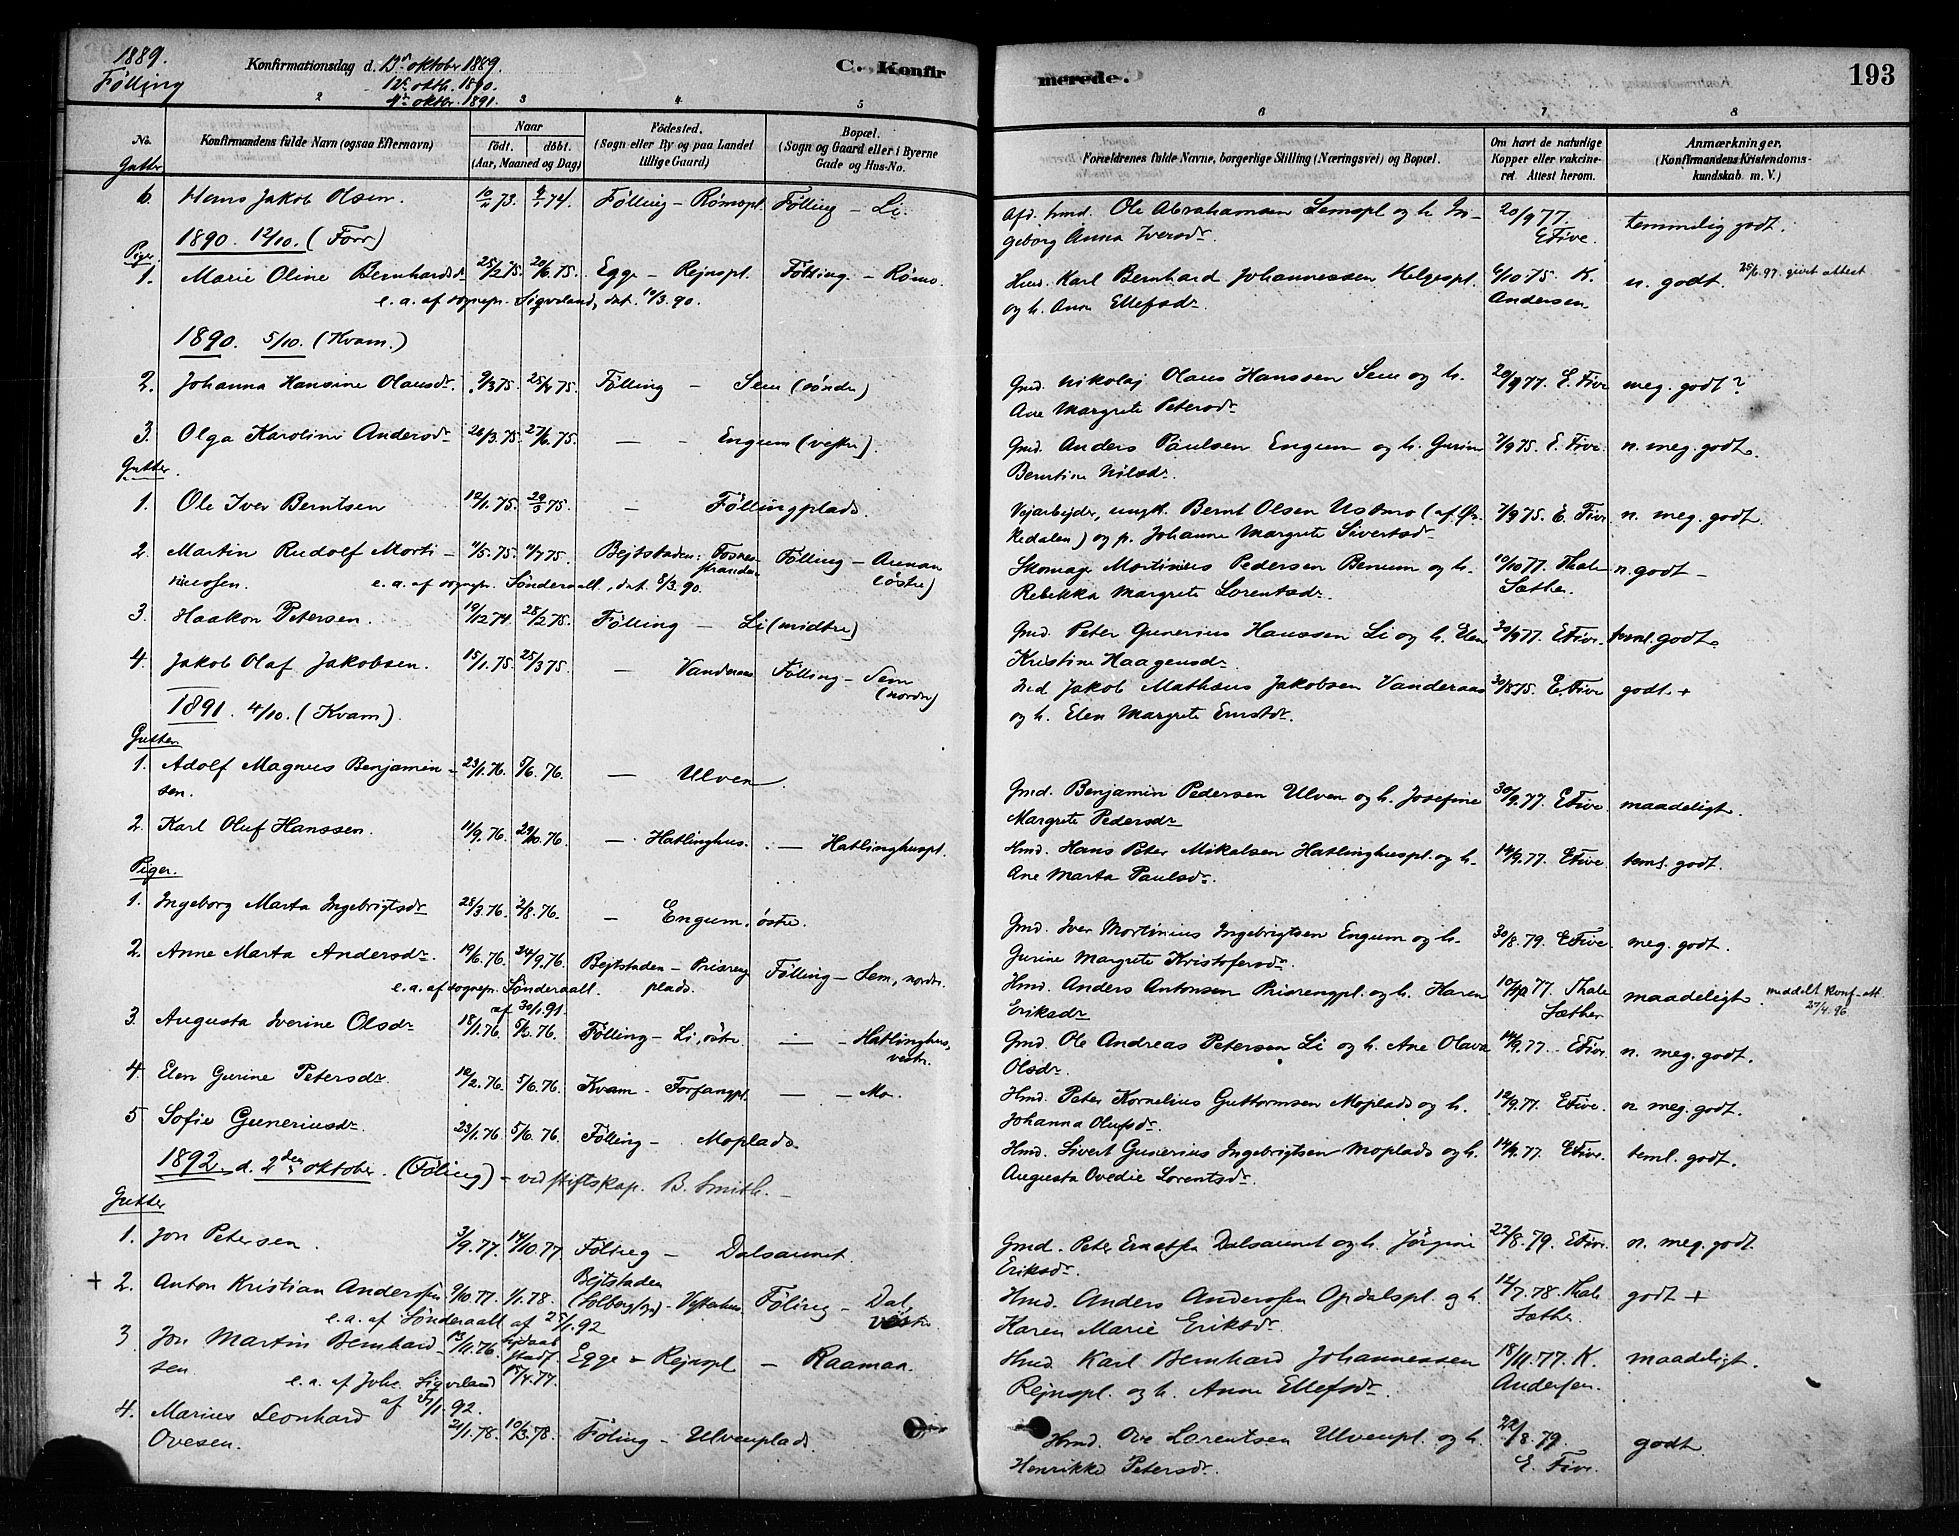 1889.
Følling
Konfirmationsdag d. 13de oktober 1889.
12te oktb. 1890.
4de oktbr. 1891.
C. Konfir
merede.
193
2 3 4 5 6 7 8
No. Konfirmandens fulde Navn (ogsaa Efternavn) Naar født. døbt. (Aar, Maaned og Dag) Fødested. (Sogn eller By og paa Landet tillige Gaard) Bopæl. (Sogn og Gaard eller i Byerne Gade og Hus-No.
Forældrenes fulde Navne, borgerlige Stilling (Næringsvei) og Bopæl. Om havt de naturlige Kopper eller vakcineret. Attest herom. Anmærkninger. (Konfirmandens Kristendomskundskab m. V.)
Gutter
6. Hans Jakob Olsen. 10/11 73. 4/1 74. Følling - Rømopl. Følling - Li. Afd. hmd. Ole Abrahamsen Semspl og h. In- 20/9 77. E Five. temmelig godt.
geborg Anna Iversdr.
1890. 12/10. (Forr)
Piger.
1. Marie Oline Bernhardsdr. 25/2 75. 20/6. 75. Egge - Rejnspl. Følling - Rømo. Hmd. Karl Bernhard Johannessen Helgespl. 6/10 75. K. Andersen n. godt. 25/6. 97. givet attest
e. a. af sognepr. Sigveland, dat. 11/3. 90. og h. Anne Ellefsdr.
1890. 5/10. (Kvam.)
2. Johanna Hansine Olausdr. 9/3 75. 25/4 75. Følling - Sem (søndre) Gmd. Nikolaj Olaus Hanssen Sem og h. 20/9 77. E. Five meg. godt?
Ane Margrete Petersdr.
3. Olga Karoline Andersdr. 26/3. 75. 27/6. 75. - - Engum (vestre). Gmd. Anders Paulsen Engum og h. Gurine 7/9 75. E. Five. n. meg. godt.
Berntine Nilsdr.
Gutter.
1. Ole Iver Berntsen 12/1. 75. 29/3 75. - Føllingplads. Vejarbejder, ungk. Bernt Olsen Ustmo (af Ør- 7/9 75. E. Five n. meg. godt.
kedalen) og p. Johanne Margrete Sivertsdr.
2. Martin Rudolf Morti- 11/5. 75. 11/7 75. Bejtstaden: Fosnesstranden Følling - Aunan (østre) Skomag. Mortinius Pedersen Benum og h. 10/10 77. Thale Sæther. n. godt -
niussen. e. a. af sognepr. Sønderaall, dat. 8/3. 90. Rebekka Margrete Lorentsdr.
3. Haakon Petersen. 19/12 74. 28/2 75. Følling - Li (midtre) Gmd. Peter Gunerius Hanssen Li og h. Elen 30/9 77. E Five. teml. godt.
Kristine Haagensdr.
4. Jakob Olaf Jakobsen. 15/1. 75. 25/3 75 - Vanderaas Følling - Sem (nordre) Ind. Jakob Mathæus Jakobsen Vanderaas 30/8 75. E. Five godt. +
og h. Elen Margrete Ernstdr.
1891. 4/10. (Kvam).
Gutter
1. Adolf Magnus Benjamin- 23/1. 76. 5/6. 76. - Ulven. Gmd. Benjamin Pedersen Ulven og h. Josefine 30/9. 77. E Five. maadeligt.
sen. Margrete Pedersdr
2. Karl Oluf Hanssen. 11/9. 76. 29/10. 76. - Hatlinghus. - Hatlinghuspl. Hmd. Hans Peter Mikalsen Hatlinghuspl. og h. 14/9. 77. E Five teml. godt.
Ane Marta Paulsdr.
Piger.
1. Ingeborg Marta Ingebrigtsdr 28/3. 76. 2/8. 76. - Engum, østre. Gmd. Iver Mortinius Ingebrigtsen Engum og h. 30/8. 79. E Five. meg. godt.
Gurine Margrete Kristofersdr.
2. Anne Marta Andersdr. 19/6. 76. 24/9. 76. Bejtstaden - Prisreng plads. Følling - Sem, nordre. Hmd. Anders Antonsen Prisrengpl. og h. Karen 10/10 77. Thale Sæther maadeligt. meddelt konf.-att. 27/4. 96.
e. a. af sognepr. Sønderaall. af 30/1. 91. Eriksdr
3. Augusta Iverine Olsdr. 18/1. 76. 5/6. 76. Følling - Li, østre. - - Hatlinghus, vestre. Gmd. Ole Andreas Petersen Li og h. Ane Olava 14/9. 77. E Five. n. meg. godt.
Olsdr.
4. Elen Gurine Petersdr. 12/2. 76. 5/6. 76. Kvam - Forfangpl. - - Mo. Hmd. Peter Kornelius Guttormsen Moplads og h. 12/9. 77. E Five. n meg. godt.
Johanna Olufsdr.
5 Sofie Guneriusdr. 23/1. 76. 5/6. 76. Følling - Moplads. Hmd. Sivert Gunerius Ingebrigtsen Moplads og h. 14/9. 77 E Five. teml. godt.
Augusta Ovedie Lorentsdr.
1892 d. 2den oktober. (Føling) - ved stiftskap. B. Smith. -
Gutter
1. Jon Petersen. 3/9. 77. 14/10. 77 Føling - Dalsaunet. Gmd. Peter Ernstsen Dalsaunet og h. Jørgine 22/8. 79. E Five. n. meg. godt.
Eriksdr.
+ 2. Anton Kristian Anderssen 9/10. 77. 1/1. 78. Bejtstaden (Solberg) Føling - Dal, vestre. Hmd. Anders Anderssen Opdalspl. og h. 12/7. 78. Thale Sæther. godt +
e. a. af Sønderaall af 27/1. 92 Karen Marie Eriksdr.
3 Jon Martin Bernhard- 13/11. 76. 15/4. 77. Egge - Rejnspl - Raaman. Hmd Karl Bernhard Johannessen 18/11. 77. K. Andersen. maadeligt.
sen e. a. af Johs. Sigveland af 1. 92. Rejnspl. og h. Anne Ellefsdr.
4. Marius Leonhard 21/1. 78. 10/3. 78. Føling - Ulvenplads. Hmd. Ove Lorentsen Ulvenpl. og h. 22/8. 79. E. Five. godt.
Ovesen. Henrikke Petersdr.